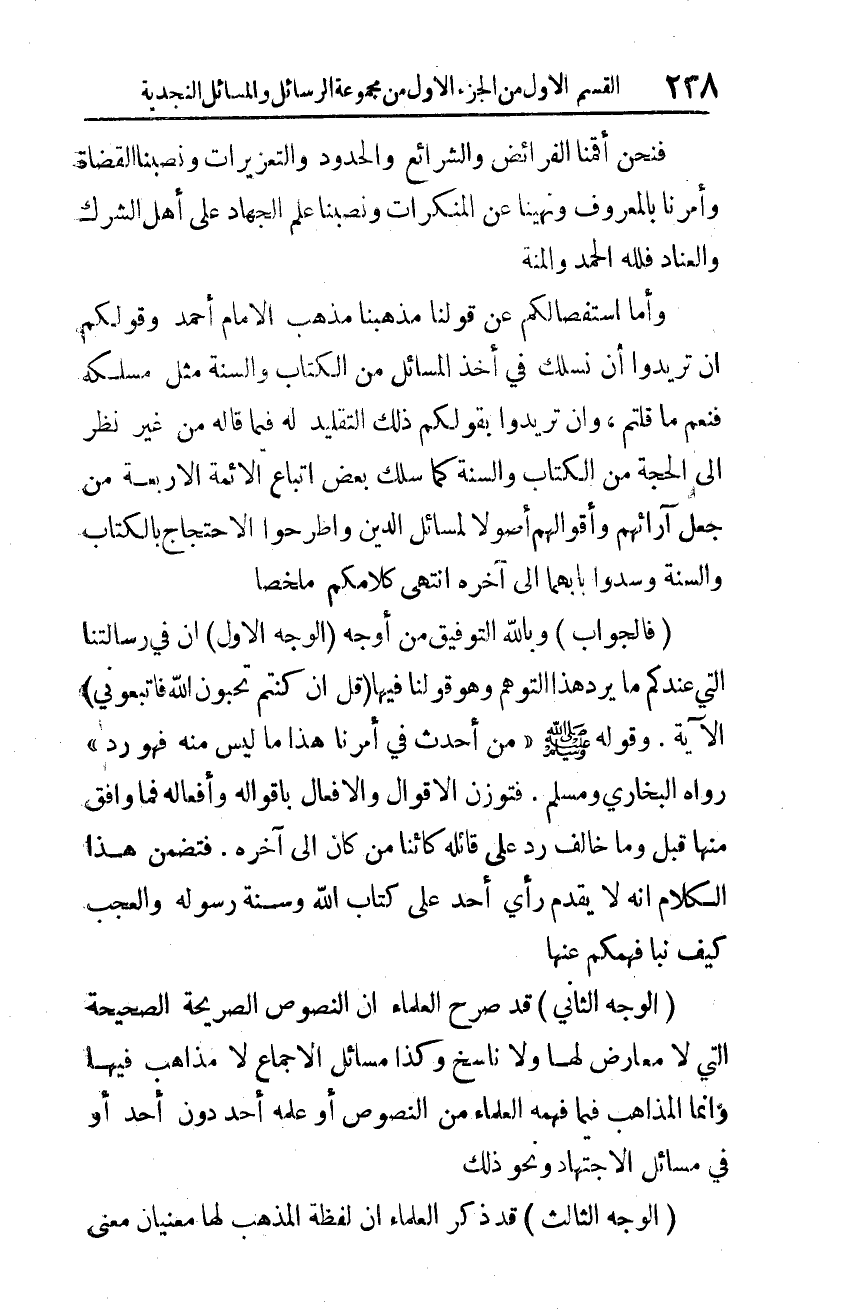 ٢٣٨ القسم الاول من الجزء الاول من مجموعة الرسائل والمسائل النجدية
فنحن أقمنا الفرائض والشرائع والحدود والتعزيرات ونصبنا القضاة
وأمرنا بالمعروف ونهينا عن المنكرات ونصبنا علم الجهاد على أهل الشرك
والعناد فلله الحمد والمنة
وأما استفصالكم عن قولنا مذهبنا مذهب الامام أحمد وقولكم
ان تريدوا أن نسلك في أخذ المسائل من الكتاب والسنة مثل مسلكه
فنعم ما قلتم ، وان تريدوا بقولكم ذلك التقليد له فيما قاله من غير نظر
الى الحجة من الكتاب والسنة كما سلك بعض اتباع الائمة الاربعة من
جعل آرائهم وأقوالهم أصولا لمسائل الدين واطرحوا الاحتجاج بالكتاب
والسنة وسدوا بابهما الى آخره انتهى كلامكم ملخصا
( فالجواب ) وبالله التوفيق من أوجه (الوجه الاول) ان في رسالتنا
التي عندكم ما يرد هذا التوهم وهو قولنا فيها (قل ان كنتم تحبون الله فاتبعوني)
الآية . وقوله ﷺ « من أحدث في أمرنا هذا ما ليس منه فهو رد »
رواه البخاري ومسلم . فتوزن الاقوال والافعال باقواله وأفعاله فما وافق
منها قبل وما خالف رد على قائله كائنا من كان الى آخره . فتضمن هذا
الكلام انه لا يقدم رأي أحد على كتاب الله وسنة رسوله والعجب
كيف نبا فهمكم عنها
( الوجه الثاني ) قد صرح العلماء ان النصوص الصريحة الصحيحة
التي لا معارض لها ولا ناسخ وكذا مسائل الاجماع لا مذاهب فيها
وانما المذاهب فيما فهمه العلماء من النصوص أو علمه أحد دون أحد أو
في مسائل الاجتهاد ونحو ذلك
( الوجه الثالث ) قد ذكر العلماء ان لفظة المذهب لها معنيان معنى